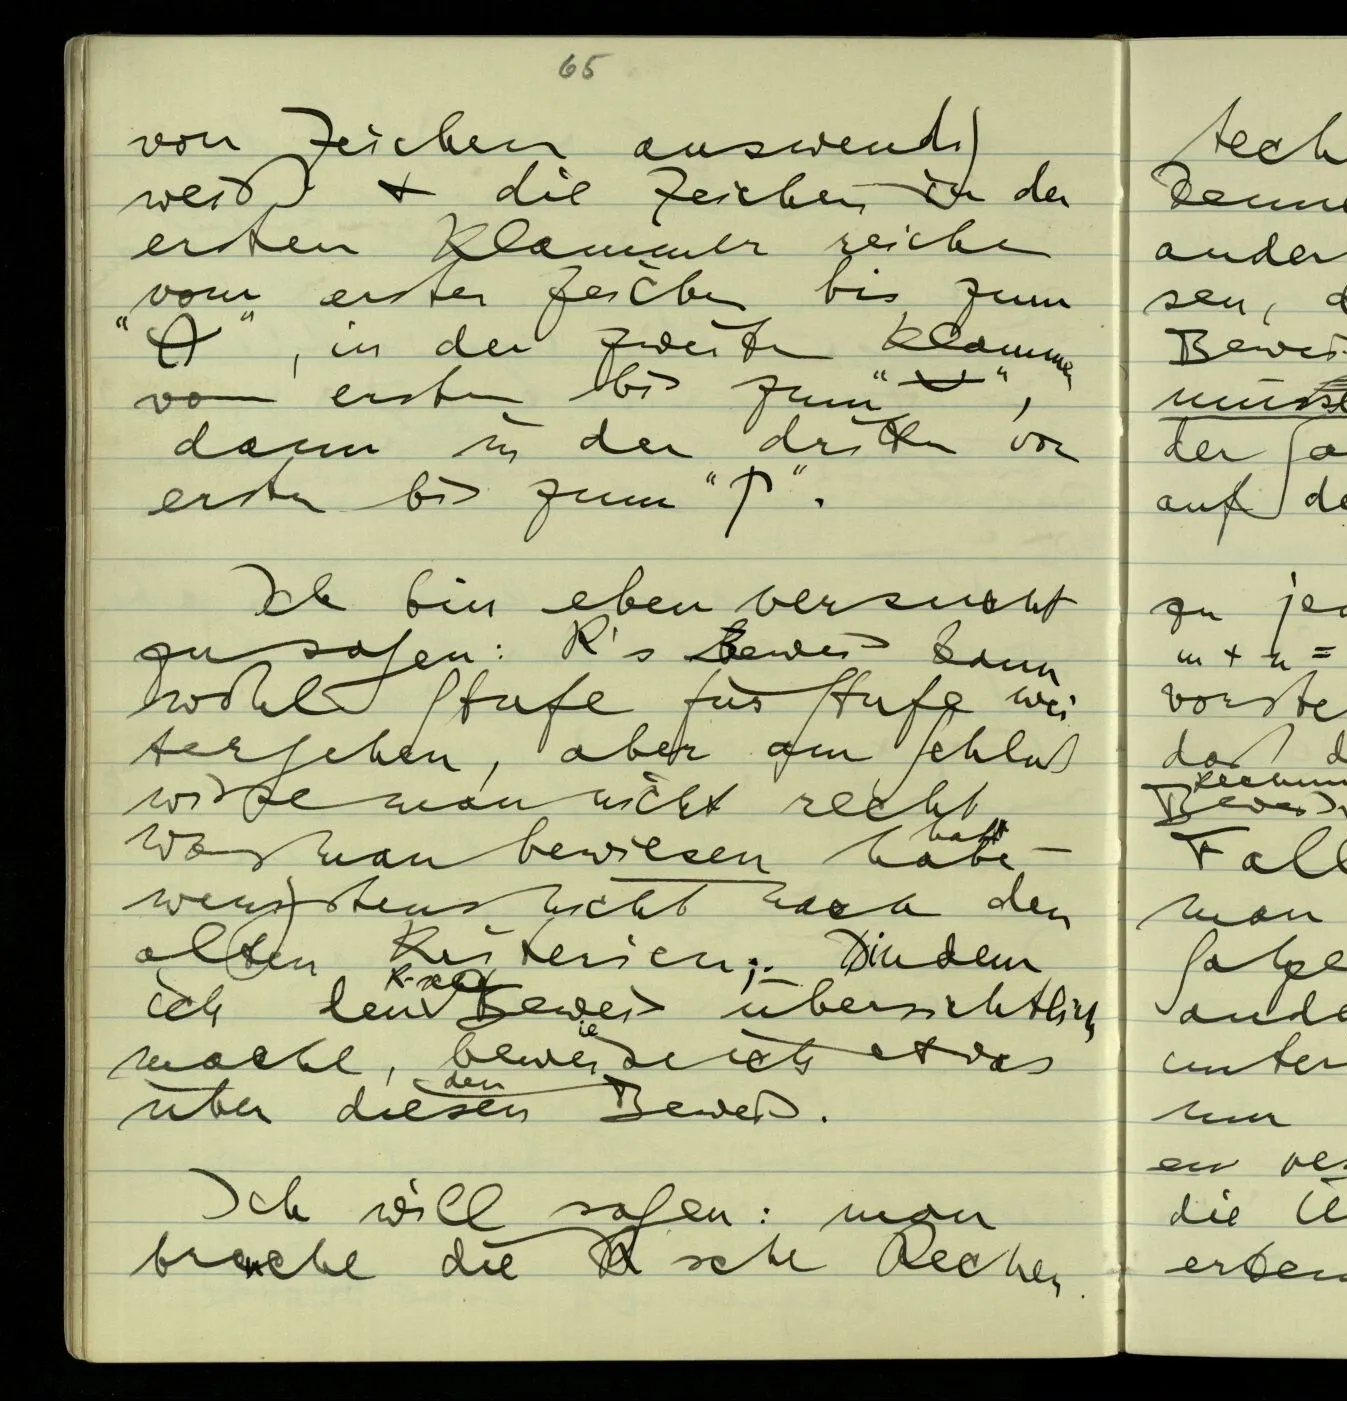 65
von Zeichen auswendig
weiß + die Zeichen in der
ersten Klammer reichen
vom ersten Zeichen bis zum
" ", in der zweiten Klammer
vom ersten bis zum " ",
dann in der dritten vom
ersten bis zum " ".
Ich bin eben versucht
zu sagen: R's Beweis kann
wohl Stufe für Stufe wei
tergehen, aber am Schluß
wisse man nicht recht
was man bewiesen habe hat –
wenigstens nicht nach den
alten Kriterien. Indem
ich den R-schen Beweis übersichtlich
mache, beweise ich etwas
über diesen den Beweis.
Ich will sagen: man
brauche die R sche Rechen
tech
ander
sen, d
Beweis
müsst
der
auf de
zu jed
m + n =
vorste
daß d
Rechnun
Beweis
Fall
man
Satze
ande
unter
nur
er ve
die Ü